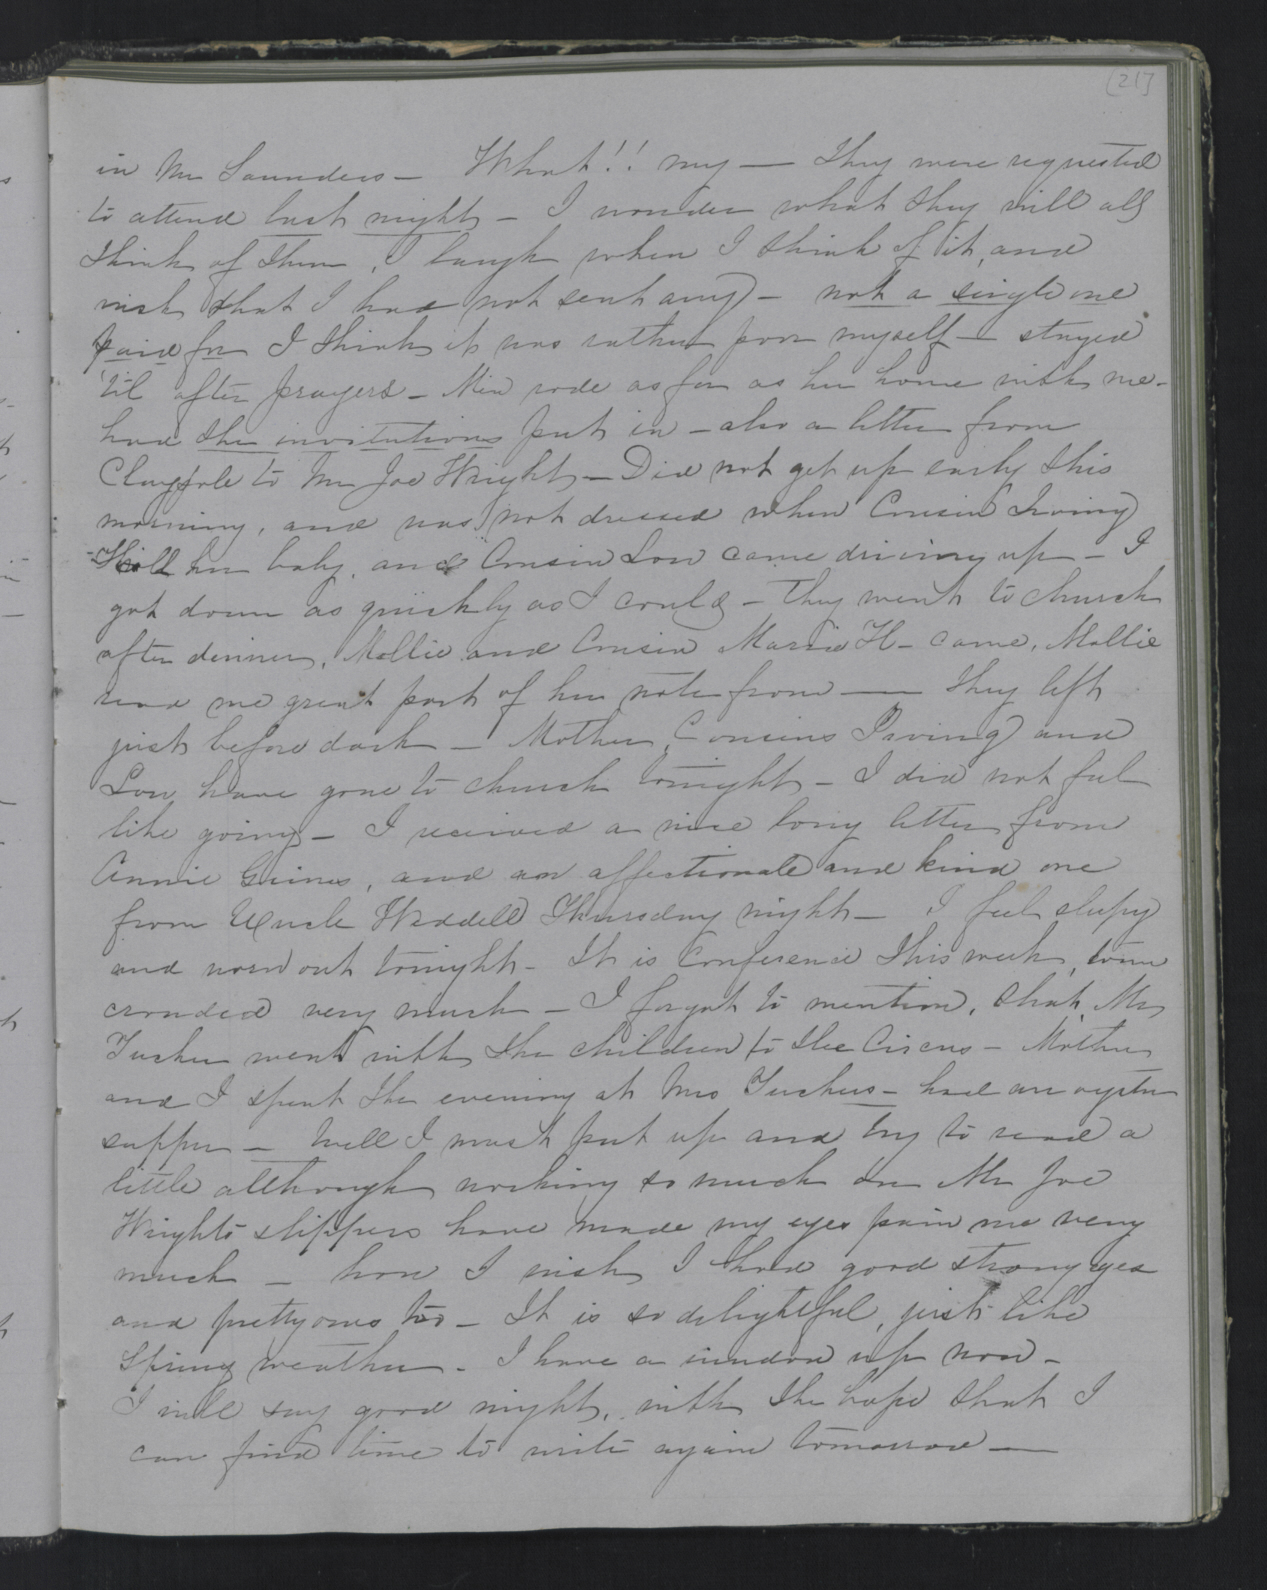 [21]
in Mr Saunders — What!! my — They were requested
to attend last night — I wonder what they will all
think of them, I laugh when I think of it, and
wish that I had not sent any — not a single one
paid for I think it was rather poor myself — stayed
'til after prayers — Min rode as far as her home with me —
had the invitations put in — also a letter from
Claypole to Mr Joe Wright — Did not get up early this
morning, and was not dressed when Cousin Irving
Hill her baby, and Cousin Lou came driving up — I
got down as quickly as I could — They went to church
after dinner, Mollie and Cousin H — came, Mollie
read me great part of her note from — They left
just before dark — Mother, Cousins Irving and
Lou have gone to church tonight — I did not feel
like going — I received a nice long letter from
Annie Grimes, and an affectionate and kind one
from Uncle Waddell Thursday night — I feel sleepy
and worn out tonight — It is Conference this week, town
crowded very much — I forgot to mention, that Mr
Tucker went with the children to the Circus — Mother
and I spent the evening at Mrs Tuckers — had an oyster
supper — Well I must put up and try to read a
little although working so much on Mr Joe
Wrights slippers have made my eyes pain me very
much — how I wish I had good strong eyes
and pretty ones too — It is so delightful, just like
Spring weather — I have a window up now —
I will say good night, with the hope that I
can find time to write again tomorrow —